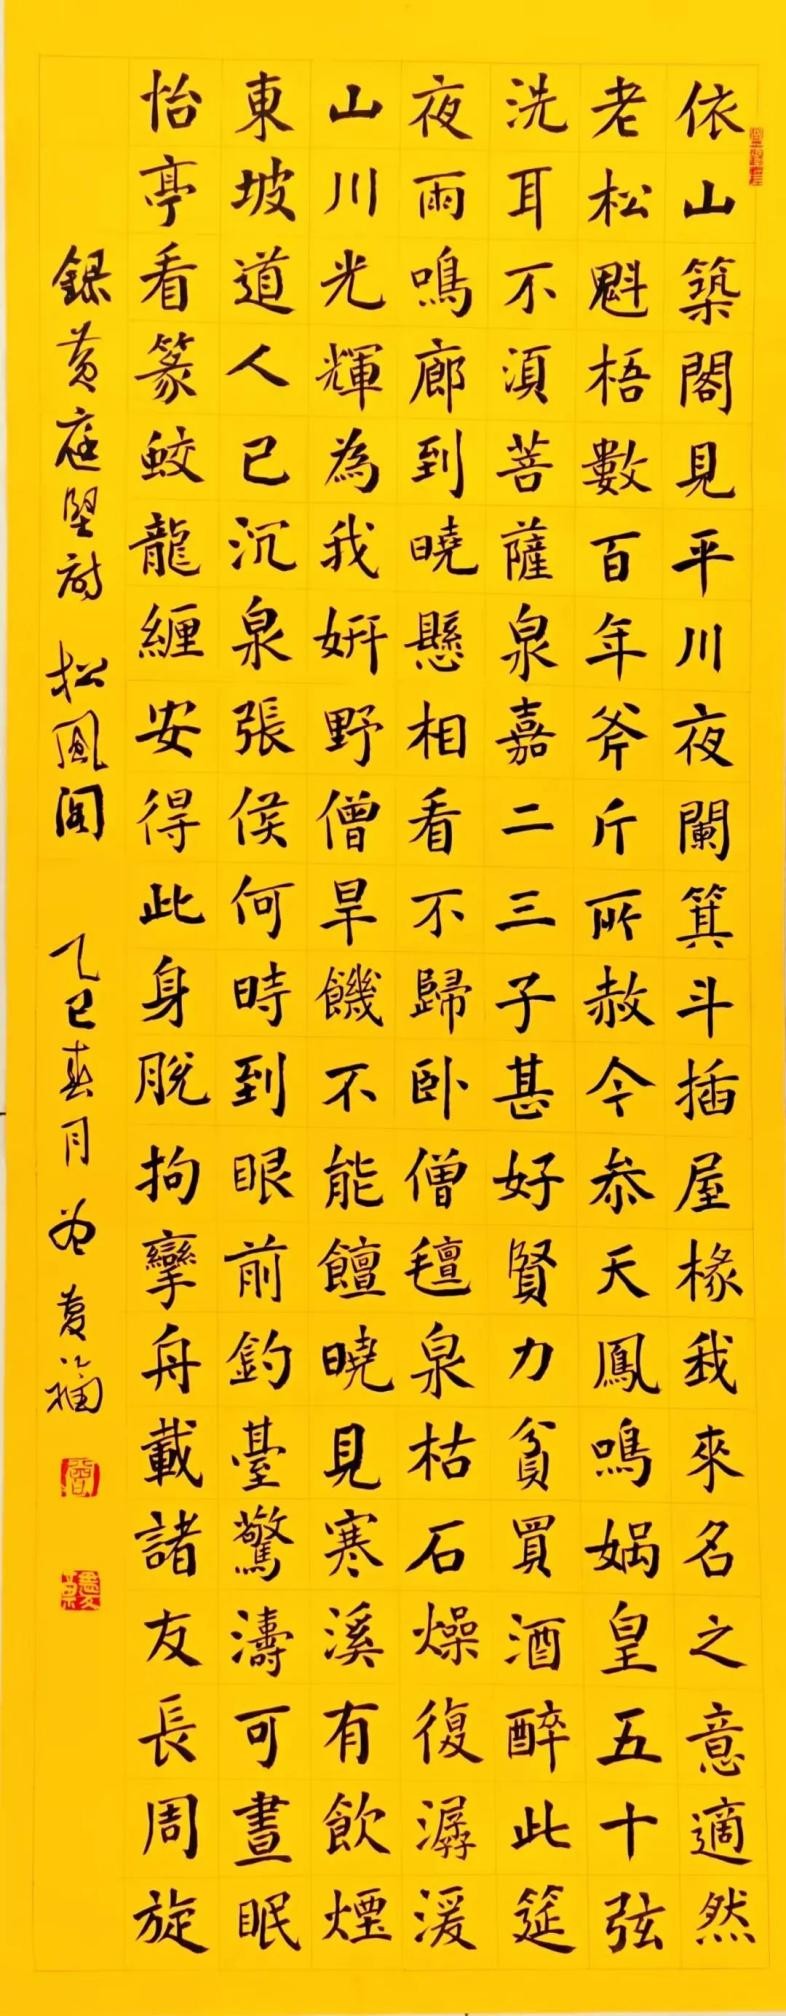 依山築閣見平川夜闌箕斗插屋椽我來名之意適然
老松魁梧數百年斧斤所赦今叅天鳳鳴媧皇五十弦
洗耳不湏菩薩泉嘉二三子甚好賢力貧買酒醉此筵
夜雨鳴廊到曉懸相看不歸卧僧氊泉枯石燥復潺湲
山川光輝為我妍野僧旱饑不能饘曉見寒溪有飲煙
東坡道人已沉泉張侯何時到眼前釣臺驚濤可晝眠
怡亭看篆蛟龍纏安得此身脫拘攣舟載諸友長周旋
錄黃庭堅詩 松風閣 乙巳春月